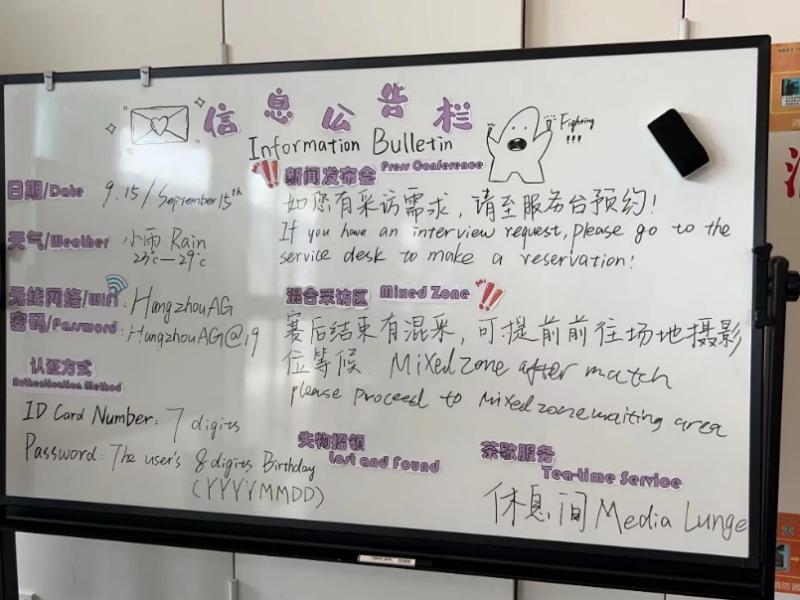 信息公告栏
Information Bulletin
Fighting
!!!
日期/Date 9.15/September 15th
天气/Weather 小雨 Rain
23℃—29℃
无线网络/WiFi: HangzhouAG
密码/Password: HangzhouAG@19
认证方式
Authentication Method
ID Card Number: 7 digits
Password: The user's 8 digits Birthday
(YYYYMMDD)
!! 新闻发布会 Press Conference
如您有采访需求,请至服务台预约!
If you have an interview request, please go to the
service desk to make a reservation!
混合采访区 Mixed Zone !!
赛后结束有混采,可提前前往场地摄影
位等候. Mixed zone after match
please proceed to mixed zone waiting area
失物招领
Lost and Found
茶歇服务
Tea-time Service
休息间 Media Lunge